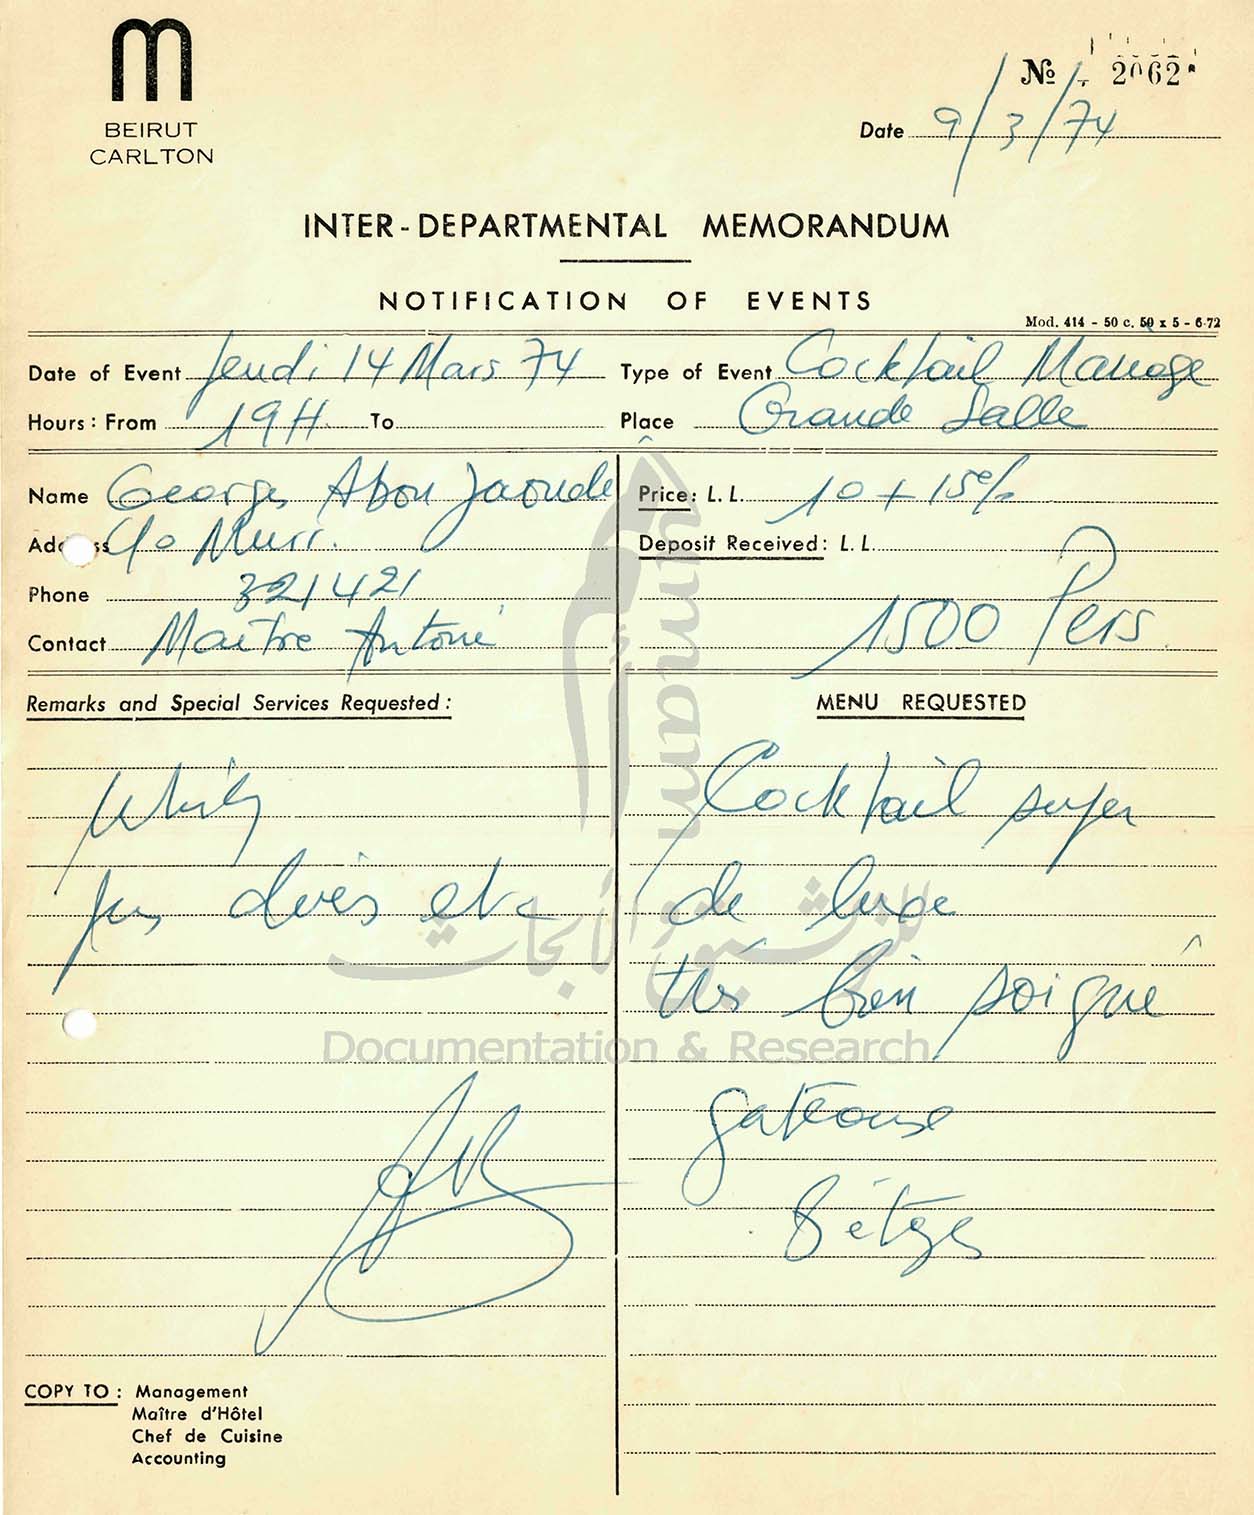 m
BEIRUT
CARLTON
№ 2062
Date 9/3/74
INTER-DEPARTMENTAL MEMORANDUM
NOTIFICATION OF EVENTS
Mod. 414 - 50 c. 50 x 5 - 6-72
Date of Event Jeudi 14 Mars 74 Type of Event Cocktail Mariage
Hours: From 19H To Place Grande Salle
Name Georges Abou Jaoude
Address c/o Murr.
Phone 321421
Contact Maitre Antoine
Price: L. L. 10 + 15%
Deposit Received: L. L.
1500 Pers
Remarks and Special Services Requested:
Whisky
Jus divers etc
MENU REQUESTED
Cocktail super
de luxe
très bien soigné
COPY TO: Management
Maître d'Hôtel
Chef de Cuisine
Accounting
umam
للتوثيق والأبحاث
Documentation & Research